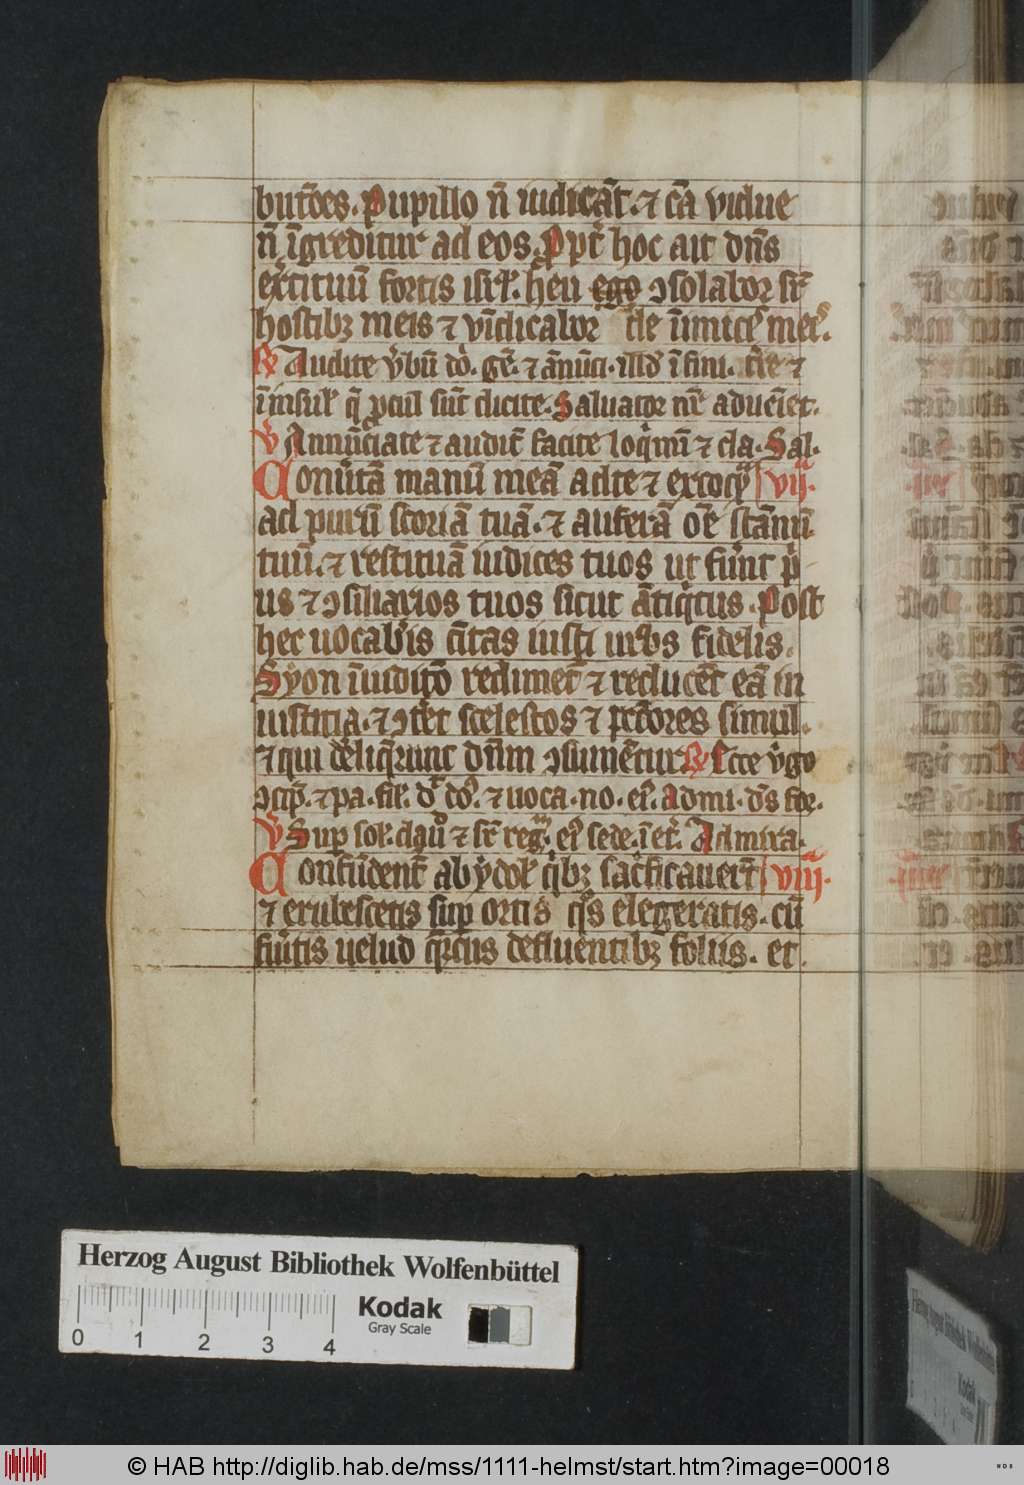 butōes. Pupillo n̄ iudicāt. ⁊ cā vidue
n̄ īgreditur ad eos. Ppt̄ hoc ait dn̄s
exꝰcituū fortis isrl̄. heu ego ꝯsolabor sr̄
hostibꝫ meis ⁊ vīdicabor de inimicꝭ meꝭ.
℟ Audite v̄bū dō. gē. ⁊ ānūci. illd̄ ī fini. t̄re ⁊
ī insul̄ q̄ ꝓcul sūt dicite. Saluator nr̄ adueīet.
℣ Annūciate ⁊ audit̄ facite loq̄mī ⁊ cla. Sal.
Conūtā manū meā ad te ⁊ excoq̄ vij.
ad purū scoriā tuā. ⁊ auferā om̄e stānū
tuū. ⁊ restituā iudices tuos ut fūnt p̄
us ⁊ ꝯsiliarios tuos sicut ātiq̄tus. Post
hec uocab̄is c̄itas iusti urbs fidelis.
Syon ī iudiçō redimet̄ ⁊ reducēt eā in
iusticia. ⁊ ꝯt̄et scelestos ⁊ pctōres simul.
⁊ qui dēliq̄runt dn̄m ꝯsumētur ℟ Ecce v̄go
ꝯcip̄. ⁊ pa. fil̄. dʳ dō. ⁊ uoca. no. eiꝰ. Admi. dꝰs for.
℣ Suꝑ sol. dauꝭ ⁊ sr̄ regꝫ. eiꝰ sede. ī et̄. Admira.
Confūdent̄ ab ydol̄ q̄bꝫ sac̄ficauerūt viij.
⁊ erubescetis suꝑ ortis q̄s elegeratis. cū
fūtis uelud q̄rcus defluentibꝫ foliis. et
Herzog August Bibliothek Wolfenbüttel
Kodak
Gray Scale
0 1 2 3 4
© HAB http://diglib.hab.de/mss/1111-helmst/start.htm?image=00018